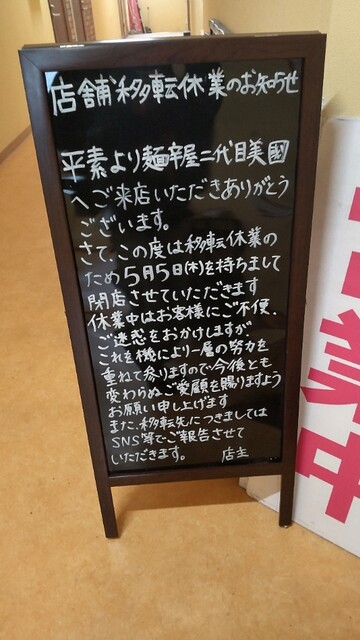 店舗移転休業のお知らせ
平素より麺辛屋二代目美國
へご来店いただきありがとう
ございます。
さて、この度は移転休業の
ため5月5日(木)を持ちまして
閉店させていただきます
休業中はお客様にご不便、
ご迷惑をおかけしますが、
これを機により一層の努力を
重ねて参りますので今後とも
変わらぬご愛顧を賜りますよう
お願い申し上げます
また、移転先につきましては
SNS等でご報告させて
いただきます。 店主
業中